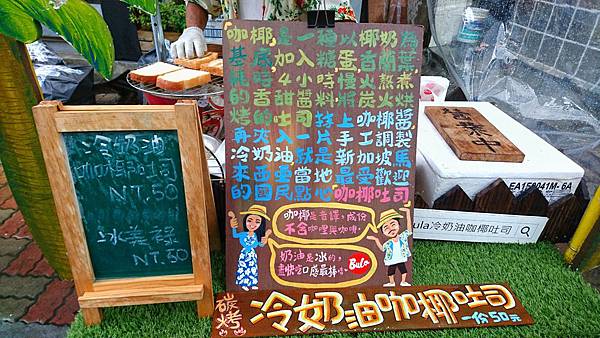 冷奶油
咖椰吐司
NT.50
冰美祿
NT.50
「咖椰」是一種以椰奶為
基底,加入糖、蛋、香蘭葉
耗時4小時慢火熬煮
的香甜醬料將炭火烘
烤的吐司抹上咖椰醬
再夾入一片手工調製
冷奶油就是新加坡馬
來西亞當地最受歡迎
的國民點心「咖椰吐司」
咖椰是音譯,成份
不含咖哩與咖啡。
奶油是冰的,
盡快吃口感最棒喔
Bula
碳烤
冷奶油咖椰吐司
一份50元
營業中
EA150041M-6A
Bula冷奶油咖椰吐司